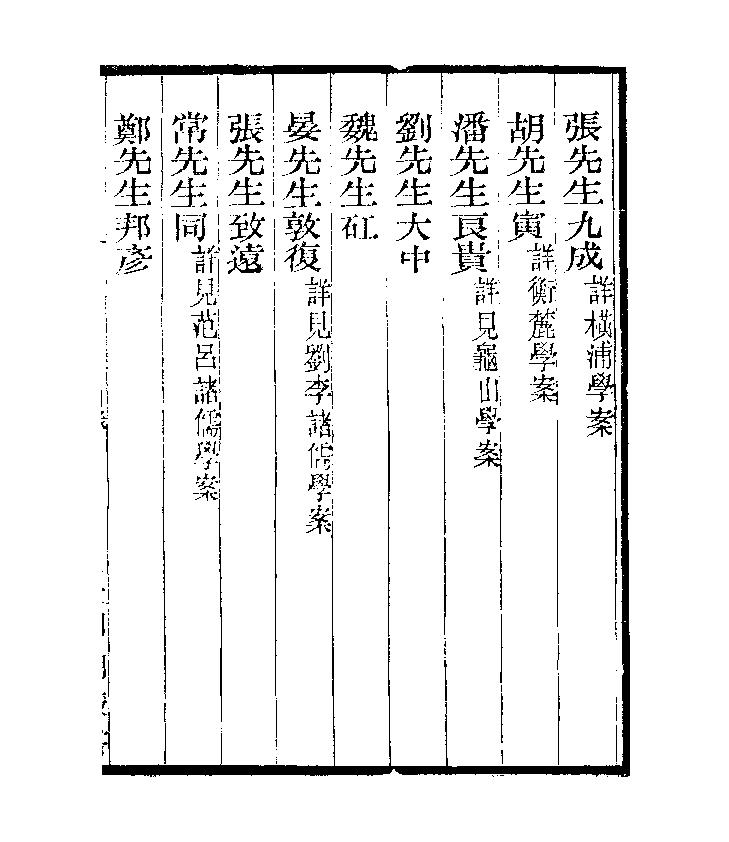 張先生九成詳橫浦學案
胡先生寅詳衡麓學案
潘先生良貴詳見龜山學案
劉先生大中
魏先生矼
晏先生敦復詳見劉李諸儒學案
張先生致遠
常先生同詳見范呂諸儒學案
鄭先生邦彥